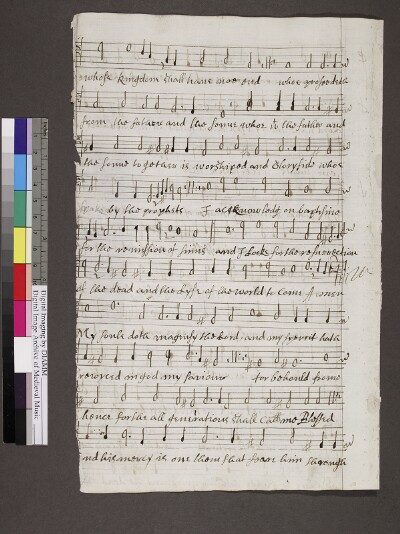 whose kingdom shall have noe end whoe proseedeth
from the father and the sonne whoe to the father and
the sonne to gether is worshiped and Gloryfide whoe
by the prophets I acknowledg on baptisme
for the remission of sinnes and I Looke for the resurection
of the dead and the Lyfe of the world to Com Amen
My soule doth magnify the Lord and my sperit hath
my saviour for behould from
hence forthe all generations shall Call me Blessed
and his mercy is one them that feare him through
Digital Imaging by DIAMM
Digital Image Archive of Medieval Music